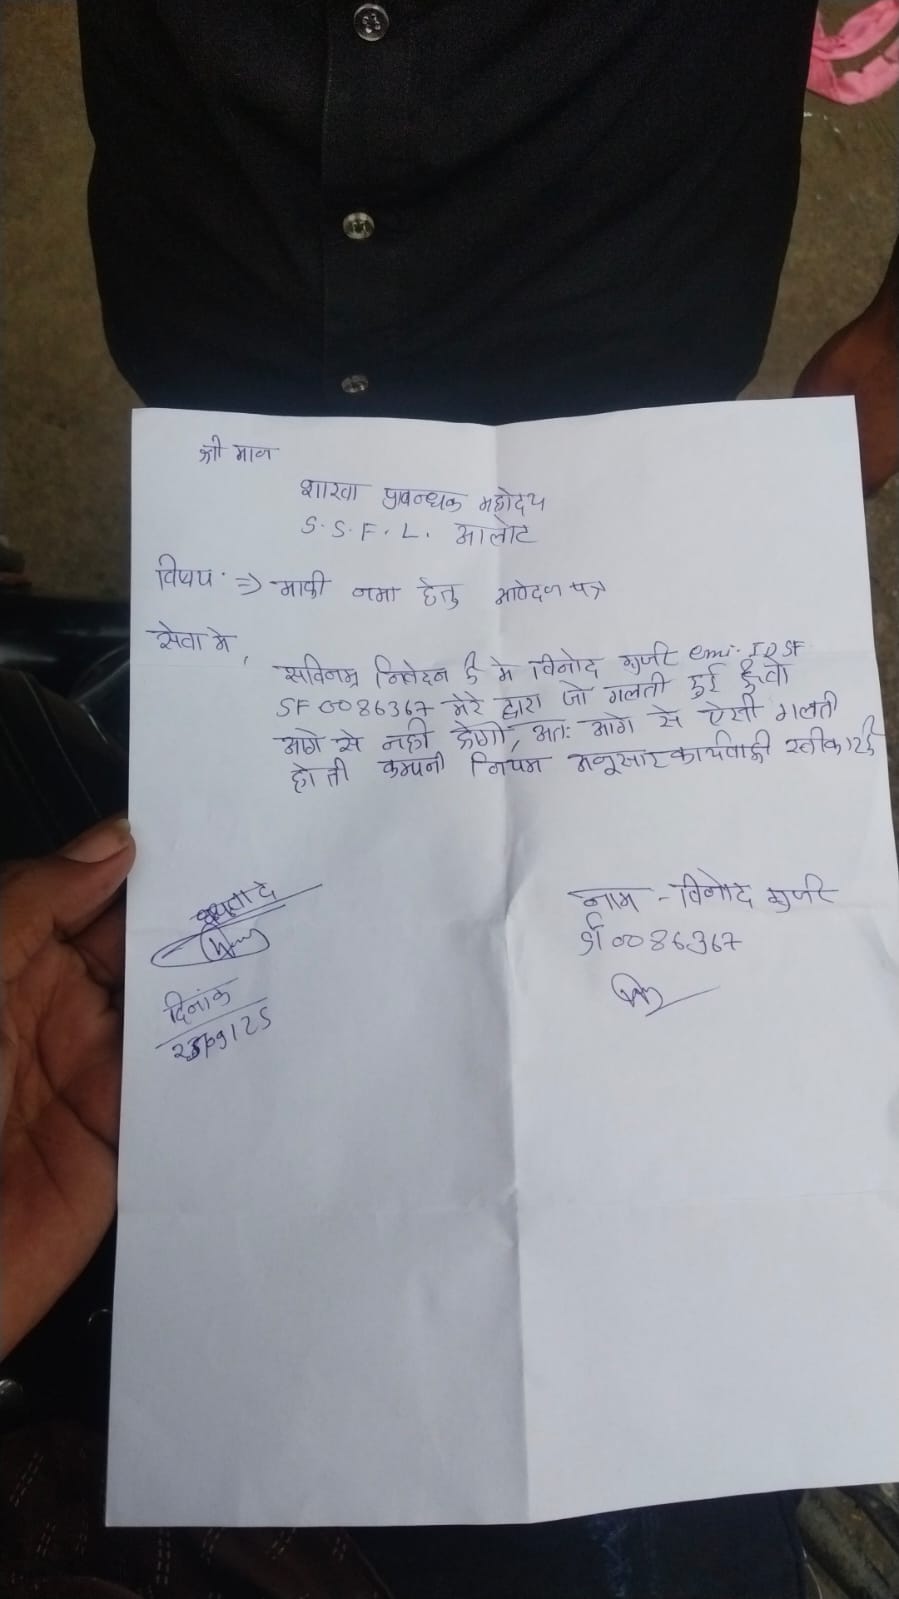 श्री मान
शाखा प्रबन्धक महोदय
S.S.F.L. आलोट
विषय ⇒ माफी नमा हेतु आवेदन पत्र
सेवा मे,
सविनम्र निवेदन है मे विनोद गुर्जर emi. ID SF
SF0086367 मेरे द्वारा जो गलती हुई है वो
आगे से नही होगी, अतः आगे से ऐसी गलती
हो तो कम्पनी नियम अनुसार कार्यवाही स्वीकार है
नाम - विनोद गुर्जर
SF0086367
दिनांक